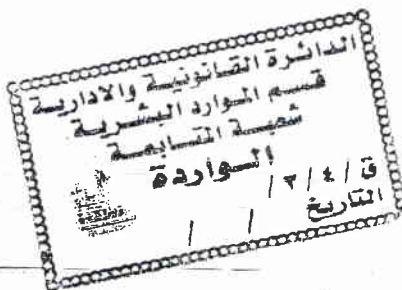 الدائرة القانونية والادارية
قسم الموارد البشرية
شعبة المتابعة
الواردة
ق / ٤ / ٢ /
التاريخ / /